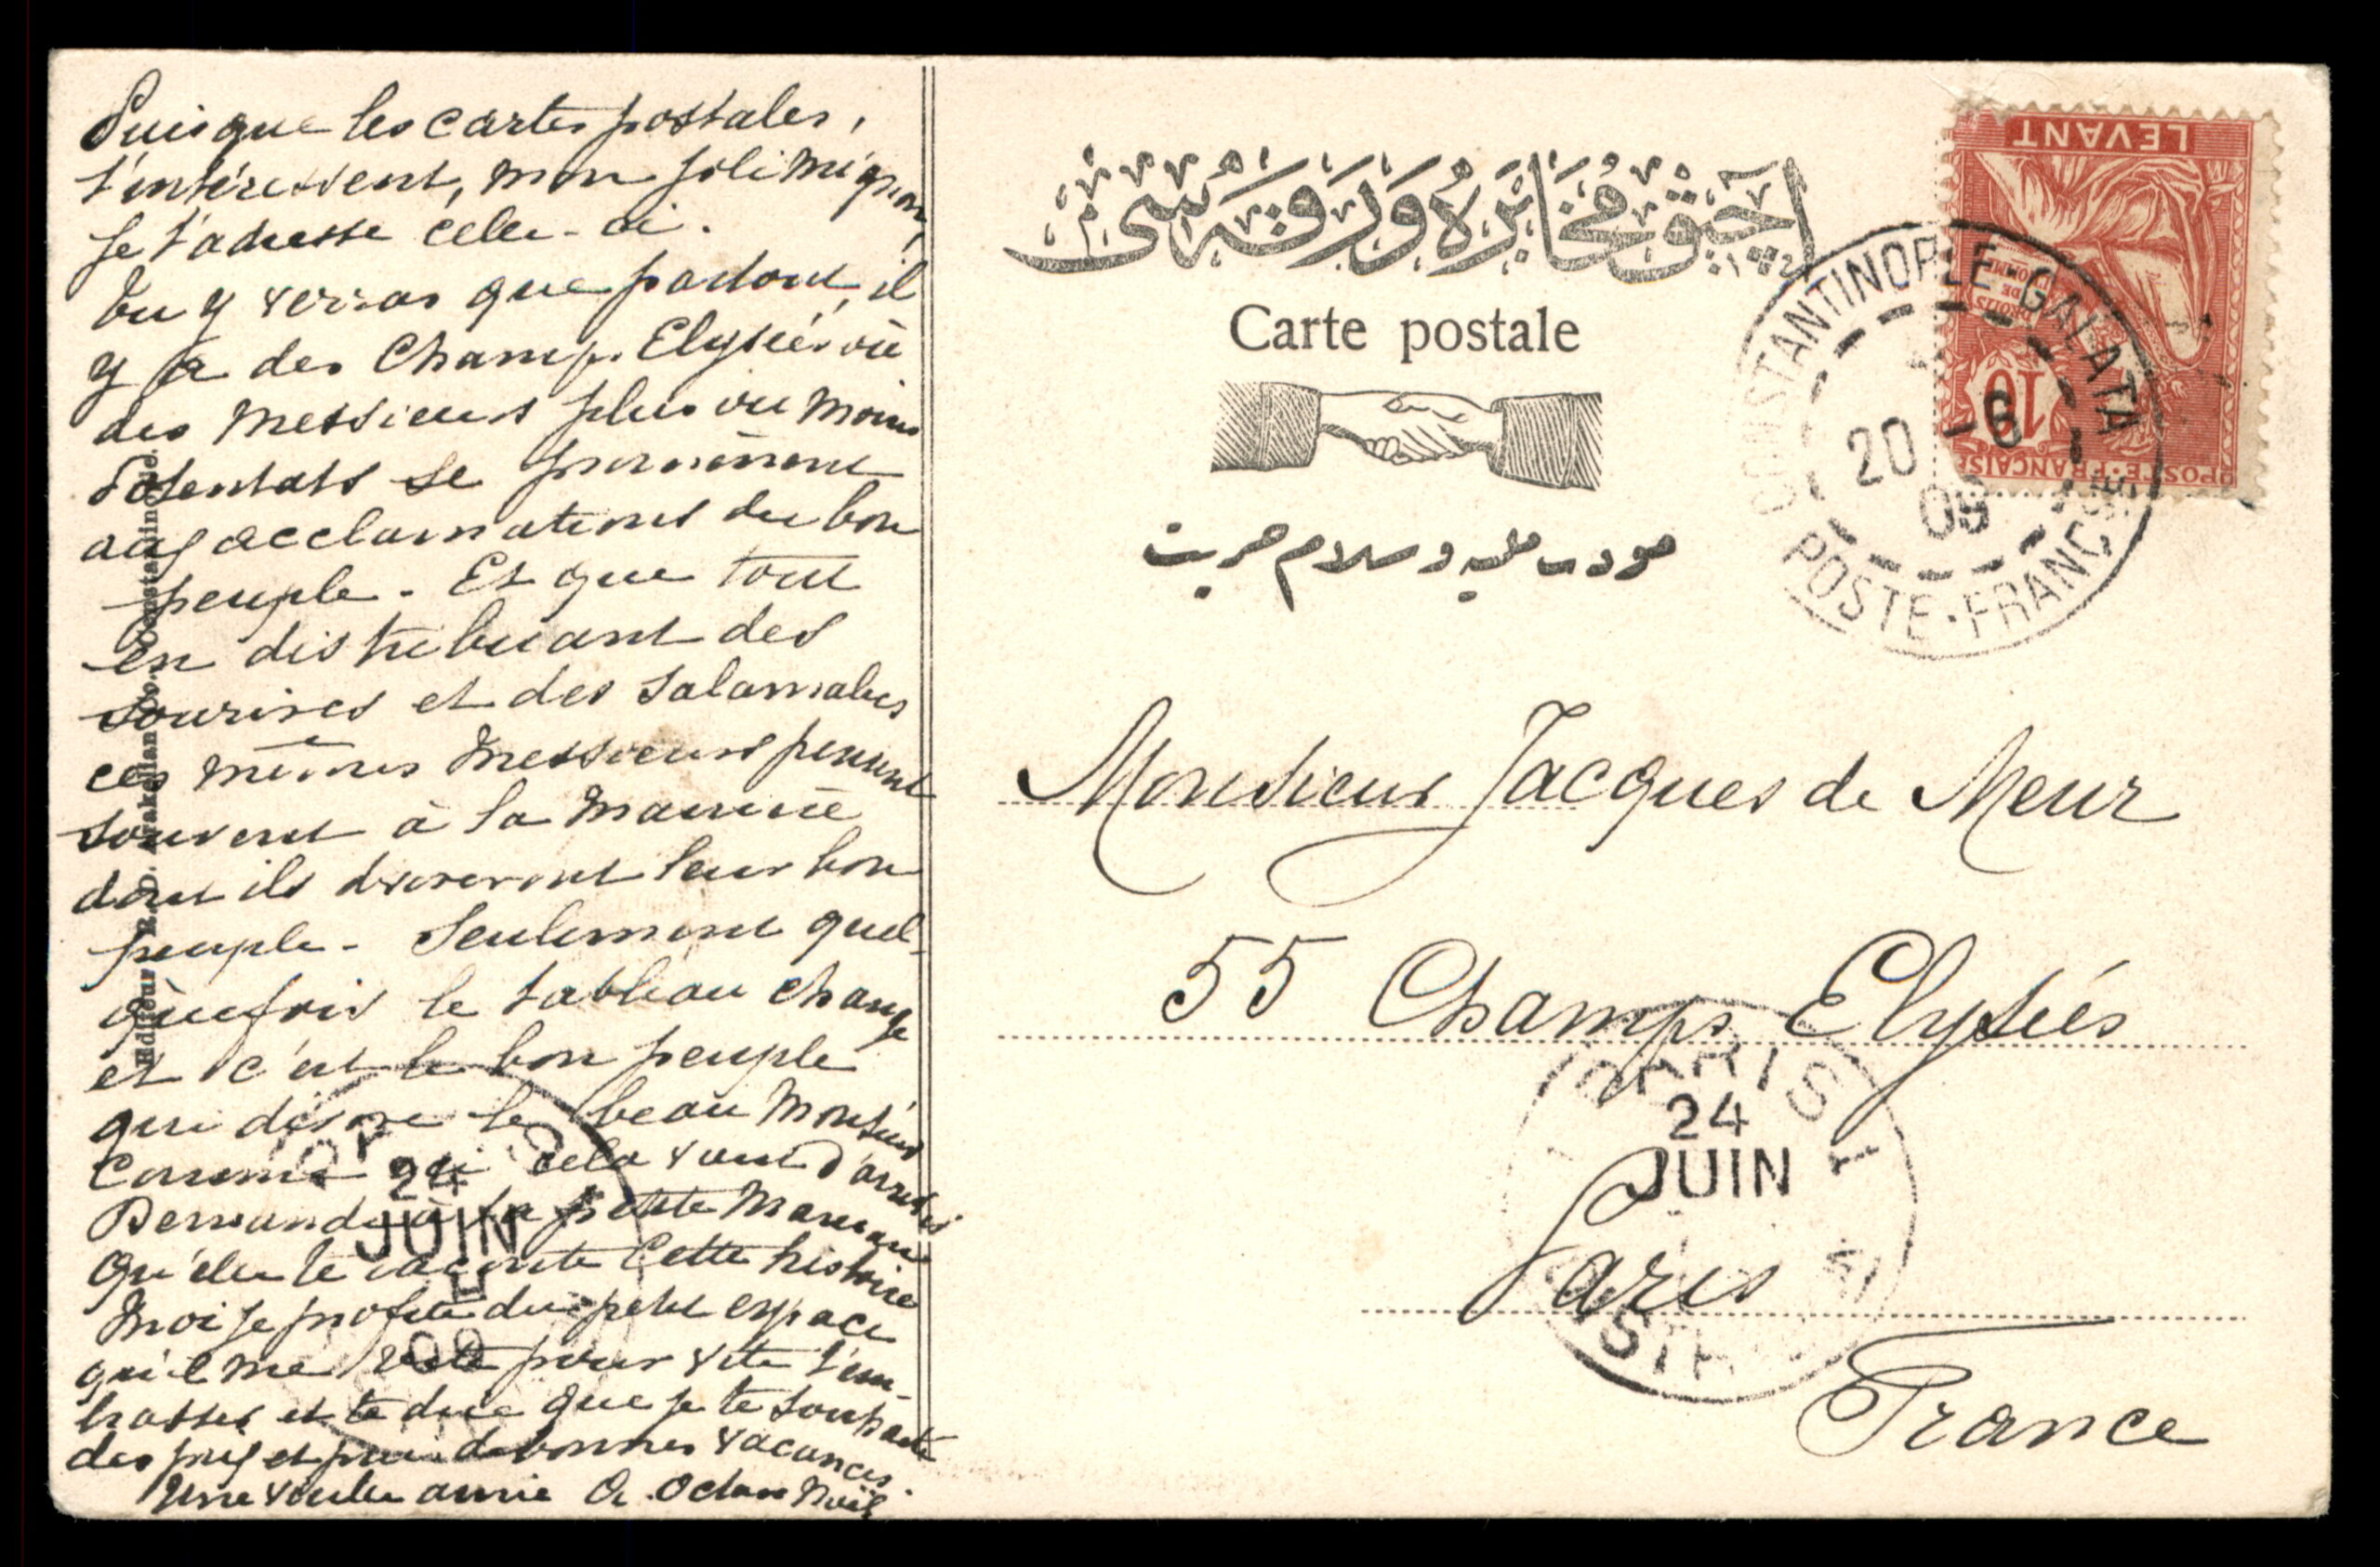 Puisque les cartes postales,
t'intéressent, mon joli mignon,
je t'adresse celle-ci.
Tu y verras que partout, il
y a des Champs Elysées où
des Messieurs plus ou moins
potentats se promènent
aux acclamations du bon
peuple. Et que tout
en distribuant des
sourires et des salamalecs
ces mêmes Messieurs pensent
souvent à la manière
dont ils dévoreront leur bon
peuple. Seulement quel-
quefois le tableau change
et c'est le bon peuple
qui dévore le beau Monsieur
Comme ici cela vient d'arriver
Demande à ta petite Maman
qu'elle te raconte cette histoire
Moi je profite du petit espace
qu'il me reste pour vite t'em-
brasser et te dire que je te souhaite
des prix et puis de bonnes vacances
Une vieille amie
Editeur R.D. Arakelian Co. Constantinople.
24
JUIN
09
آچيق مخابره ورقه سى
Carte postale
LEVANT
10
POSTE FRANÇAISE
CONSTANTINOPLE-GALATA
20 -6
09
POSTE FRANCSE
Monsieur Jacques de Meur
55 Champs Elysées
Paris
France
PARIS
24
JUIN